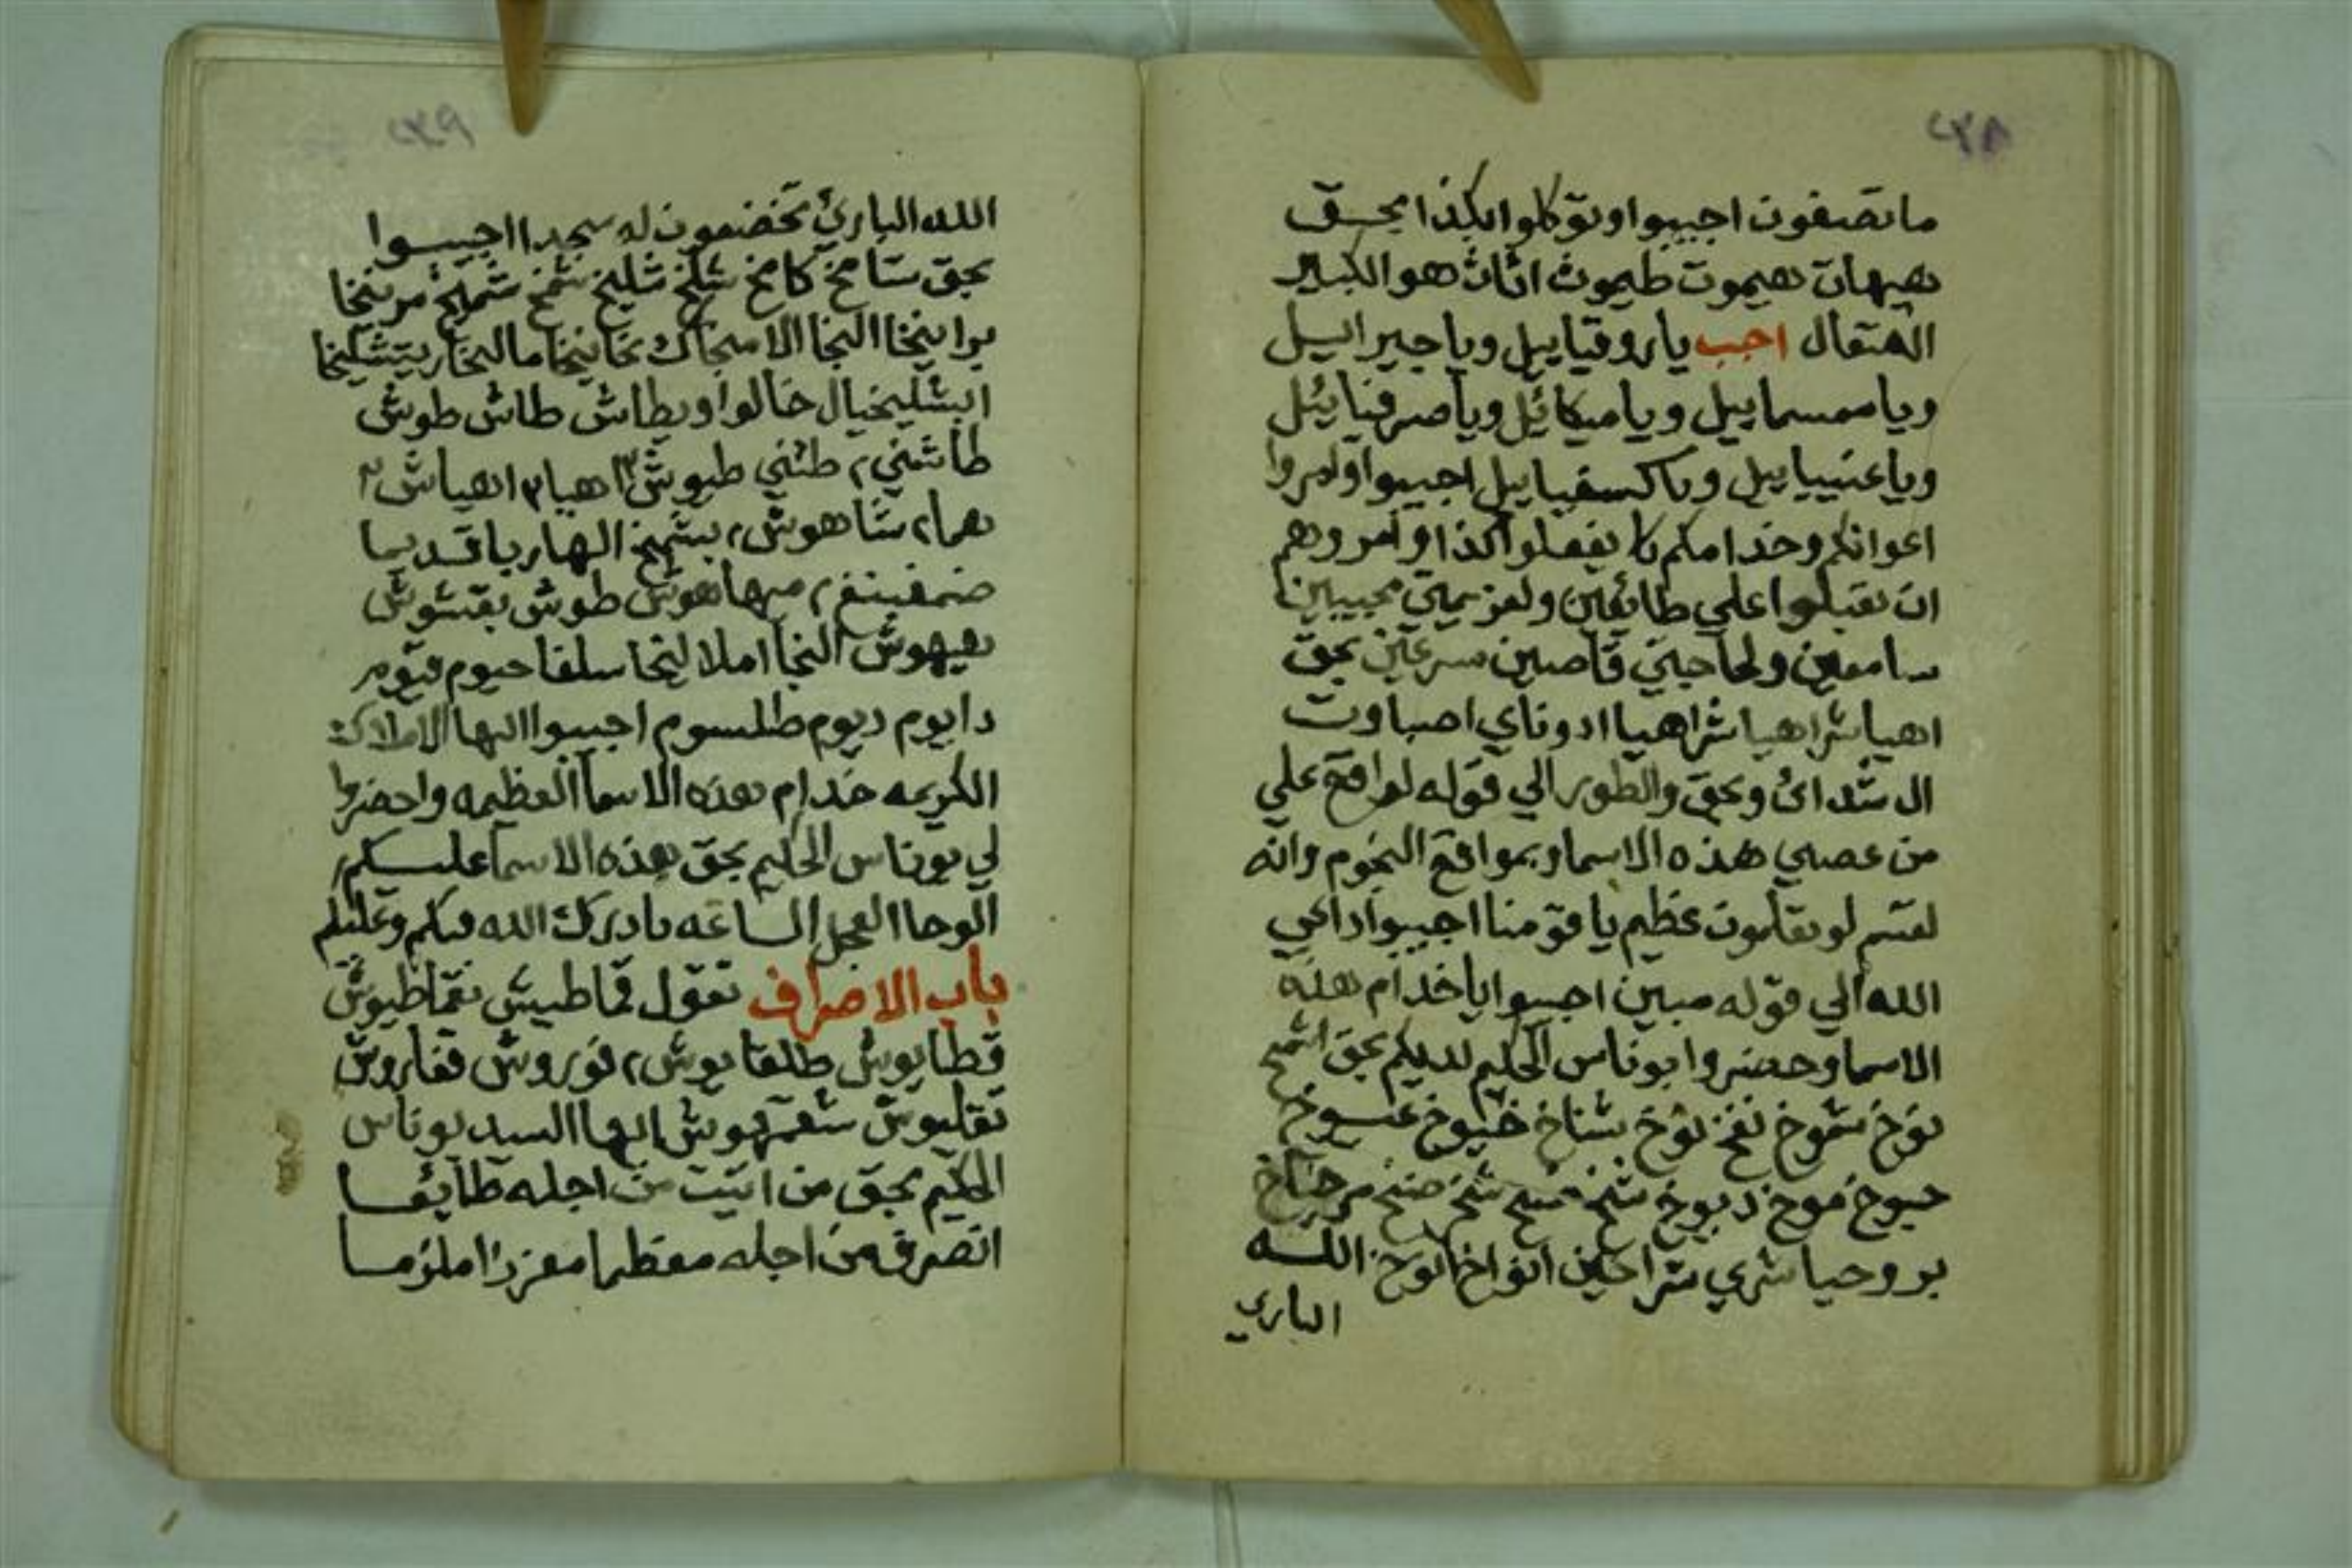 ٢٣٨
ما تصفون اجيبوا وتوكلوا بكذا بحق
هيهات هيموت طيموث اثاث هو الكبير
المتعال اجب يا روقياييل ويا جبراييل
ويا سمسماييل ويا ميكائيل ويا صرفيائيل
ويا عنيياييل ويا كسفياييل اجيبوا وامروا
اعوانكم وخدامكم كا يفعلوا كذا وامروهم
ان يقبلوا علي طائعين ولعزيمتي مجيبين
سامعين ولحاجتي قاصين سرعين بحق
اهيا شراهيا شراهيا ادوناي اصباوت
ال شداي وبحق والطور الي قوله لواقع علي
من عصي هذه الاسما وبمواقع النجوم وانه
لقسم لو تعلمون عظيم يا قومنا اجيبوا داعي
الله الي قوله مبين اجيبوا يا خدام هذه
الاسما وحضروا بوناس الحكيم لديكم بحق اشمخ
نوخ شموخ نفخ نوخ بشناخ خيوخ
حيوخ موخ ديوخ شمخ شمخ
بروحيا شري شراحين انواخ نوخ الله
الباري
٢٣٩
الله البارئ تخضعون له سجدا اجيبوا
بحق شامخ كامخ شلخ شليخ شمخ شميخ مرنيخا
برانيخا النخا الا منخاك نخانيخا ما النخا
اشليخيال خالوا وبطاش طاش طوش
طاشني ٢ طشني طيوش ٣ اهيا ٣ اهياش ٢
هما ٢ شاهوش ٢ بشمخ الهار يا قديما
مهاهوش طوش بقشوش
بهيهوش النخا املا ليخا سلفا حيوم قيوم
دايوم ديوم طلسوم اجيبوا ايها الاملاك
الكريمه خدام هذه الاسما العظيمه واحضروا
لي بوناس الحكيم بحق هذه الاسما عليكم
الوحا العجل الساعه بادرك الله فيكم وعليكم
باب الاصراف تقول قماطيش نقماطيوش
قطايوش طلقايوش ٢ نوروش قفاروش
نقليوش شعرهوش ايها السيد بوناس
الحكيم بحق من اتيت من اجله طايعا
انصرف من اجله معظما معززا ملزما